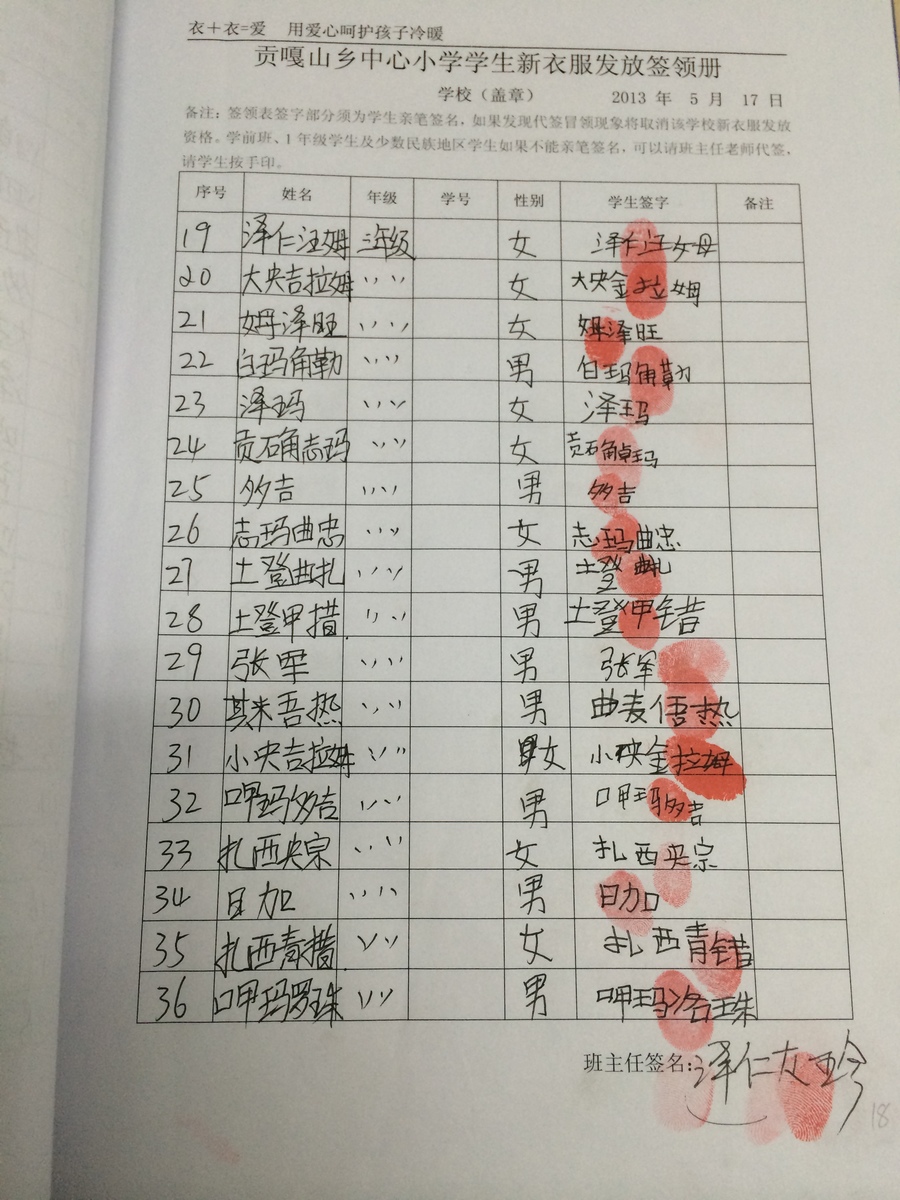 衣+衣=爱 用爱心呵护孩子冷暖
贡嘎山乡中心小学学生新衣服发放签领册
学校（盖章） 2013 年 5 月 17 日
备注：签领表签字部分须为学生亲笔签名，如果发现代签冒领现象将取消该学校新衣服发放
资格。学前班、1年级学生及少数民族地区学生如果不能亲笔签名，可以请班主任老师代签，
请学生按手印。
序号 姓名 年级 学号 性别 学生签字 备注
19 泽仁汪姆 三年级 女 泽仁汪姆
20 大央吉拉姆 〃 女 大央金拉姆
21 姆泽旺 〃 女 姆泽旺
22 白玛角勒 〃 男 白玛角勒
23 泽玛 〃 女 泽玛
24 贡石角志玛 〃 女 贡石角卓玛
25 多吉 〃 男 多吉
26 志玛曲忠 〃 女 志玛曲忠
27 土登曲扎 〃 男 土登曲扎
28 土登甲措 〃 男 土登甲错
29 张军 〃 男 张军
30 其米吾热 〃 男 曲麦俉热
31 小央吉拉姆 〃 女 小央金拉姆
32 呷玛多吉 〃 男 呷玛多吉
33 扎西央宗 〃 女 扎西央宗
34 日加 〃 男 日加
35 扎西青措 〃 女 扎西青错
36 呷玛罗珠 〃 男 呷玛洛珠
班主任签名:泽仁友珍
18